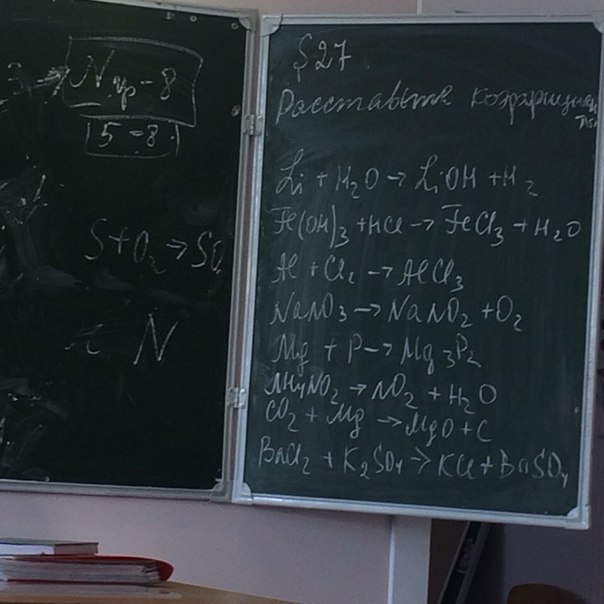 N гр - 8
5 = 8.
S + O₂ → SO
N
§ 27
Расставьте коэффициенты
Li + H₂O → LiOH + H₂
Fe(OH)₃ + HCl → FeCl₃ + H₂O
Al + Cl₂ → AlCl₃
NaNO₃ → NaNO₂ + O₂
Mg + P → Mg₃P₂
NH₄NO₂ → NO₂ + H₂O
CO₂ + Mg → MgO + C
BaCl₂ + K₂SO₄ → KCl + BaSO₄